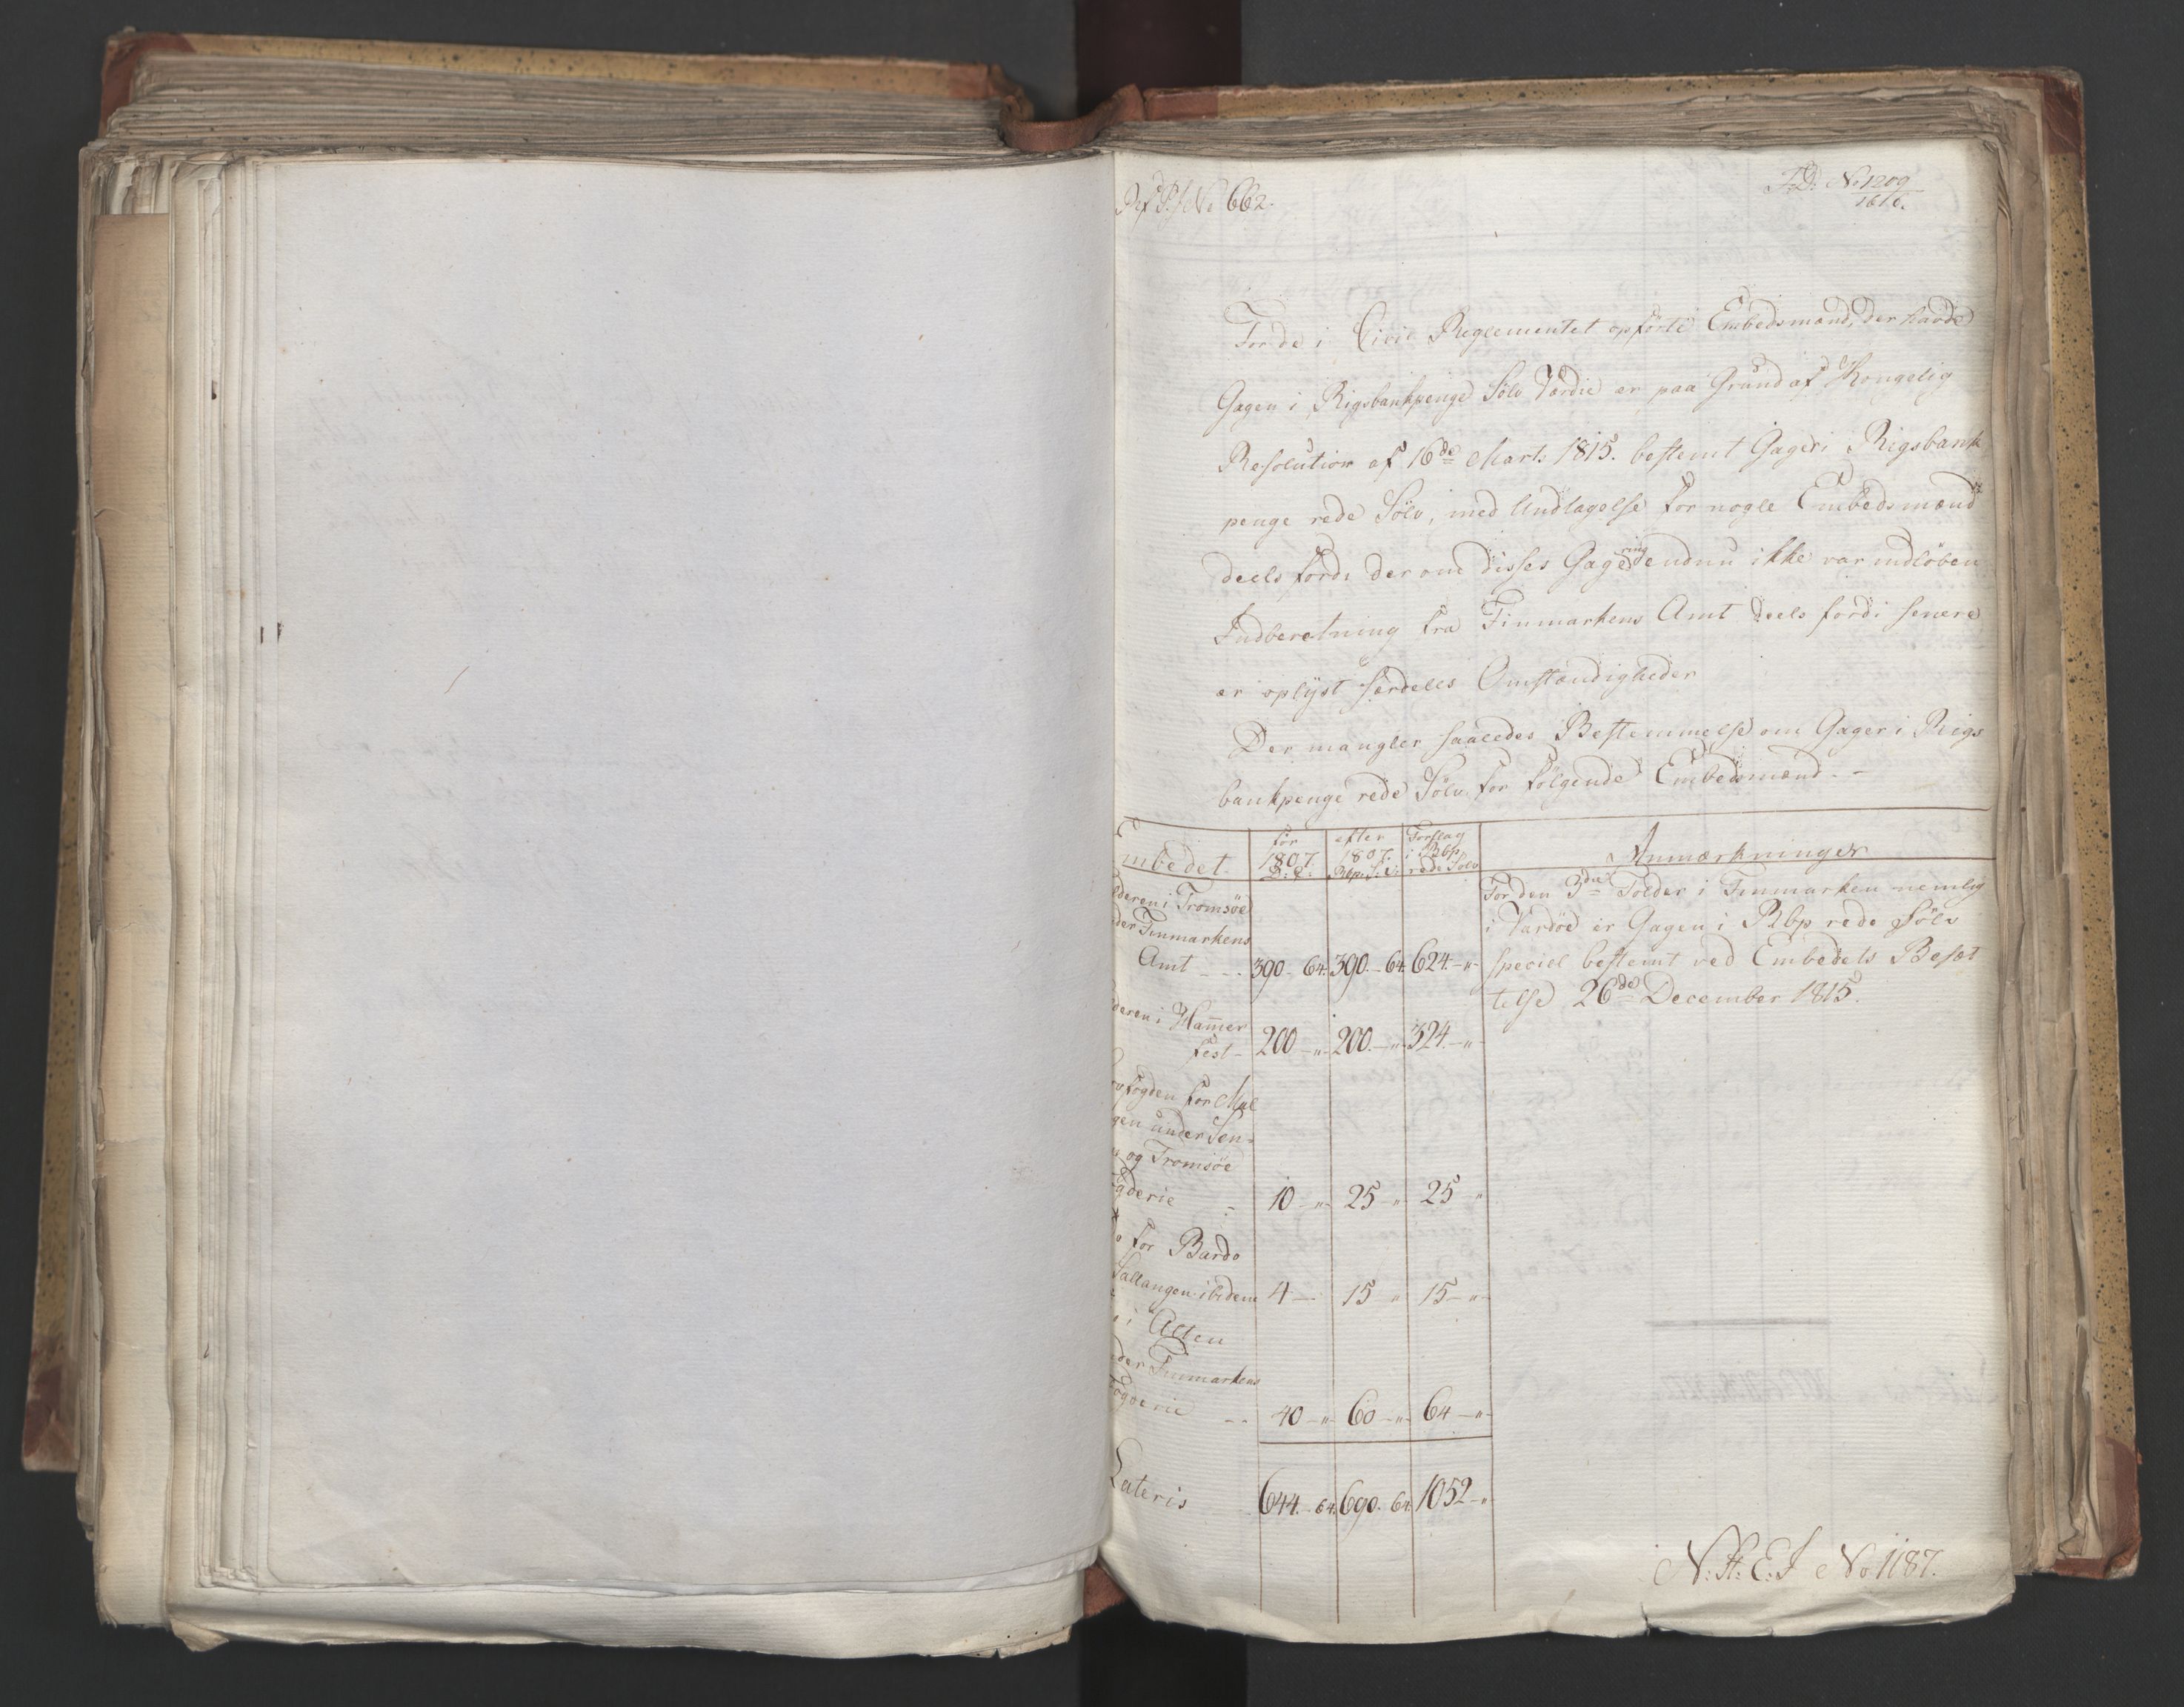 No 662.
F: D: No 1209
1816.
For de i Civil Reglementet opförte Embedsmænd, der havde
Gagen i Rigsbankpenge Sölv Værdie er paa Grund af Kongelig
Resolution af 16de Marts 1815. bestemt Gager i Rigsbank
penge rede Sölv, med Undtagelse for nogle Embedsmænd
deels fordi der om disses Gagering endnu ikke var indlöben
Indberetning fra Finmarkens Amt deels fordi senere
er oplÿst særdeles Omstændigheder
Der mangler saaledes Bestemmelse om Gager i Rigs
bankpenge rede Sölv for fölgende Embedsmænd. -
Embedet. för 1807. D: C: efter 1807. Rbp. S: V: Forslag i Rbp rede Sölv Anmærkninger
lderen i Tromsöe
der Finmarkens
Amt - - - 390. 64. 390. - 64. 624. - "-
For den 3die Tolder i Finmarken nemlig
i Vardöe er Gagen i Rbp rede Sölv
speciel bestemt ved Embedets Besæt
telse 26de December 1815.
deren i Ham̅er
fest - 200 - "- 200. - "- 324. - "-
fogden for Mal
gen under Sen-
og Tromsöe
gderie - 10 - "- 25 " 25 "
for Bardo
Sallangen ibidem 4 - 15 " 15 - "-
i Alten
der Finmarkens
Fogderie - - 40 - "- 60 - "- 64 - "-
Lateris 644. - 64. 690. 64. 1052 - "
N: H: E: J No 1187.